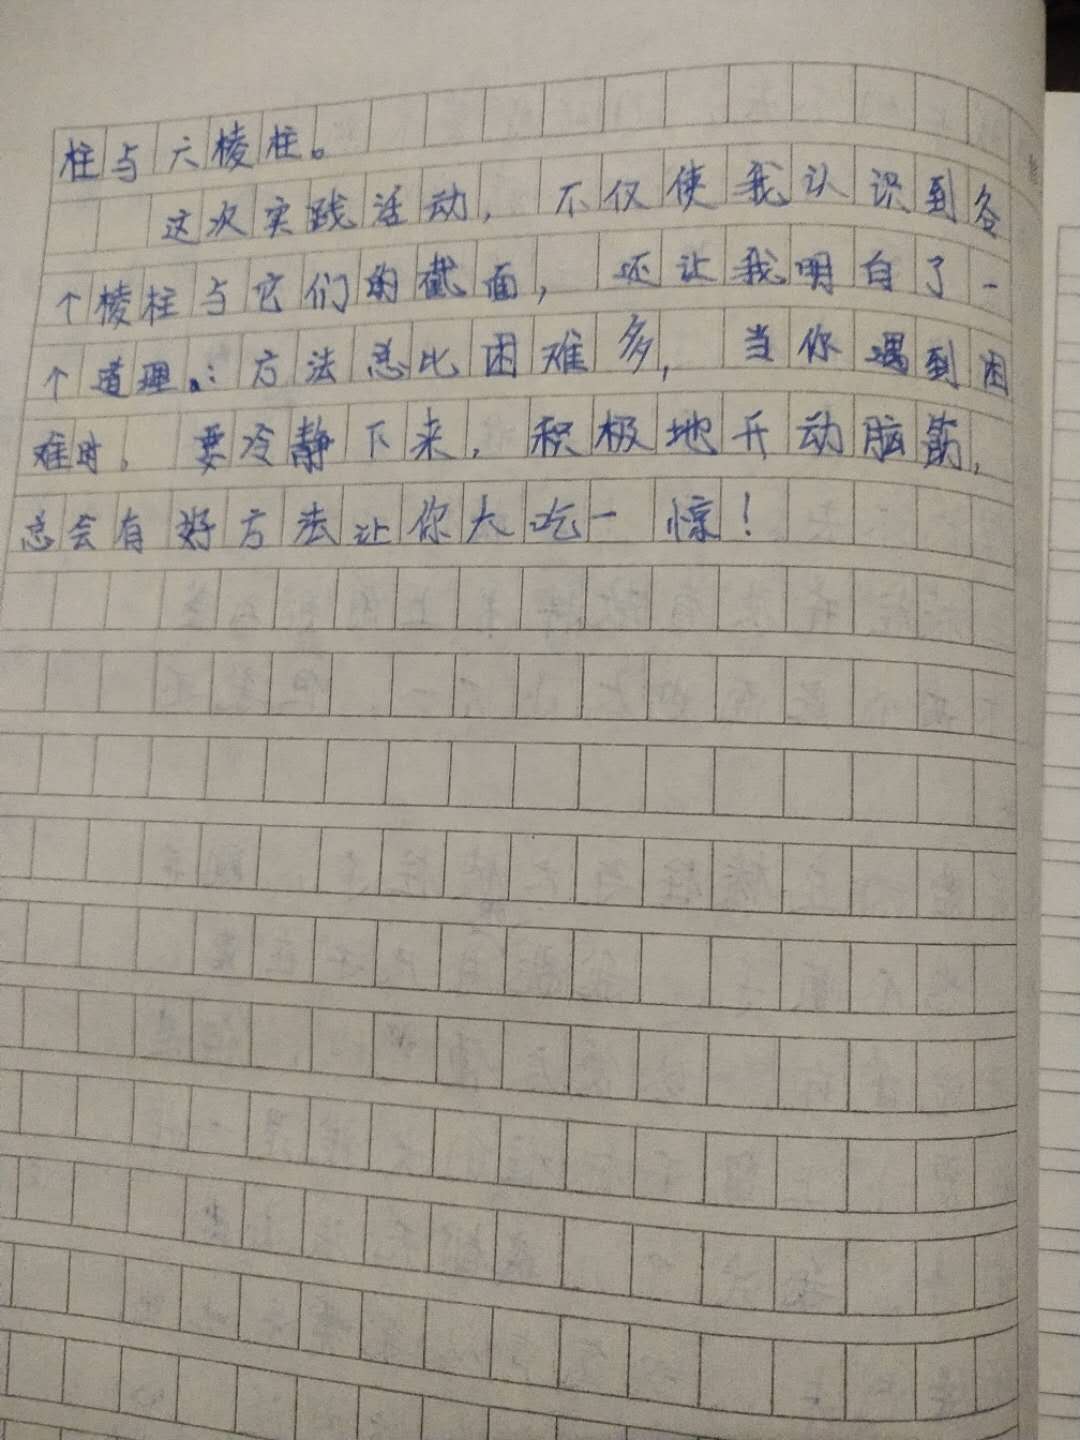 柱与六棱柱。
这次实践活动，不仅使我认识到各
个棱柱与它们的截面，还让我明白了一
个道理：方法总比困难多，当你遇到困
难时，要冷静下来，积极地开动脑筋，
总会有好方法让你大吃一惊！